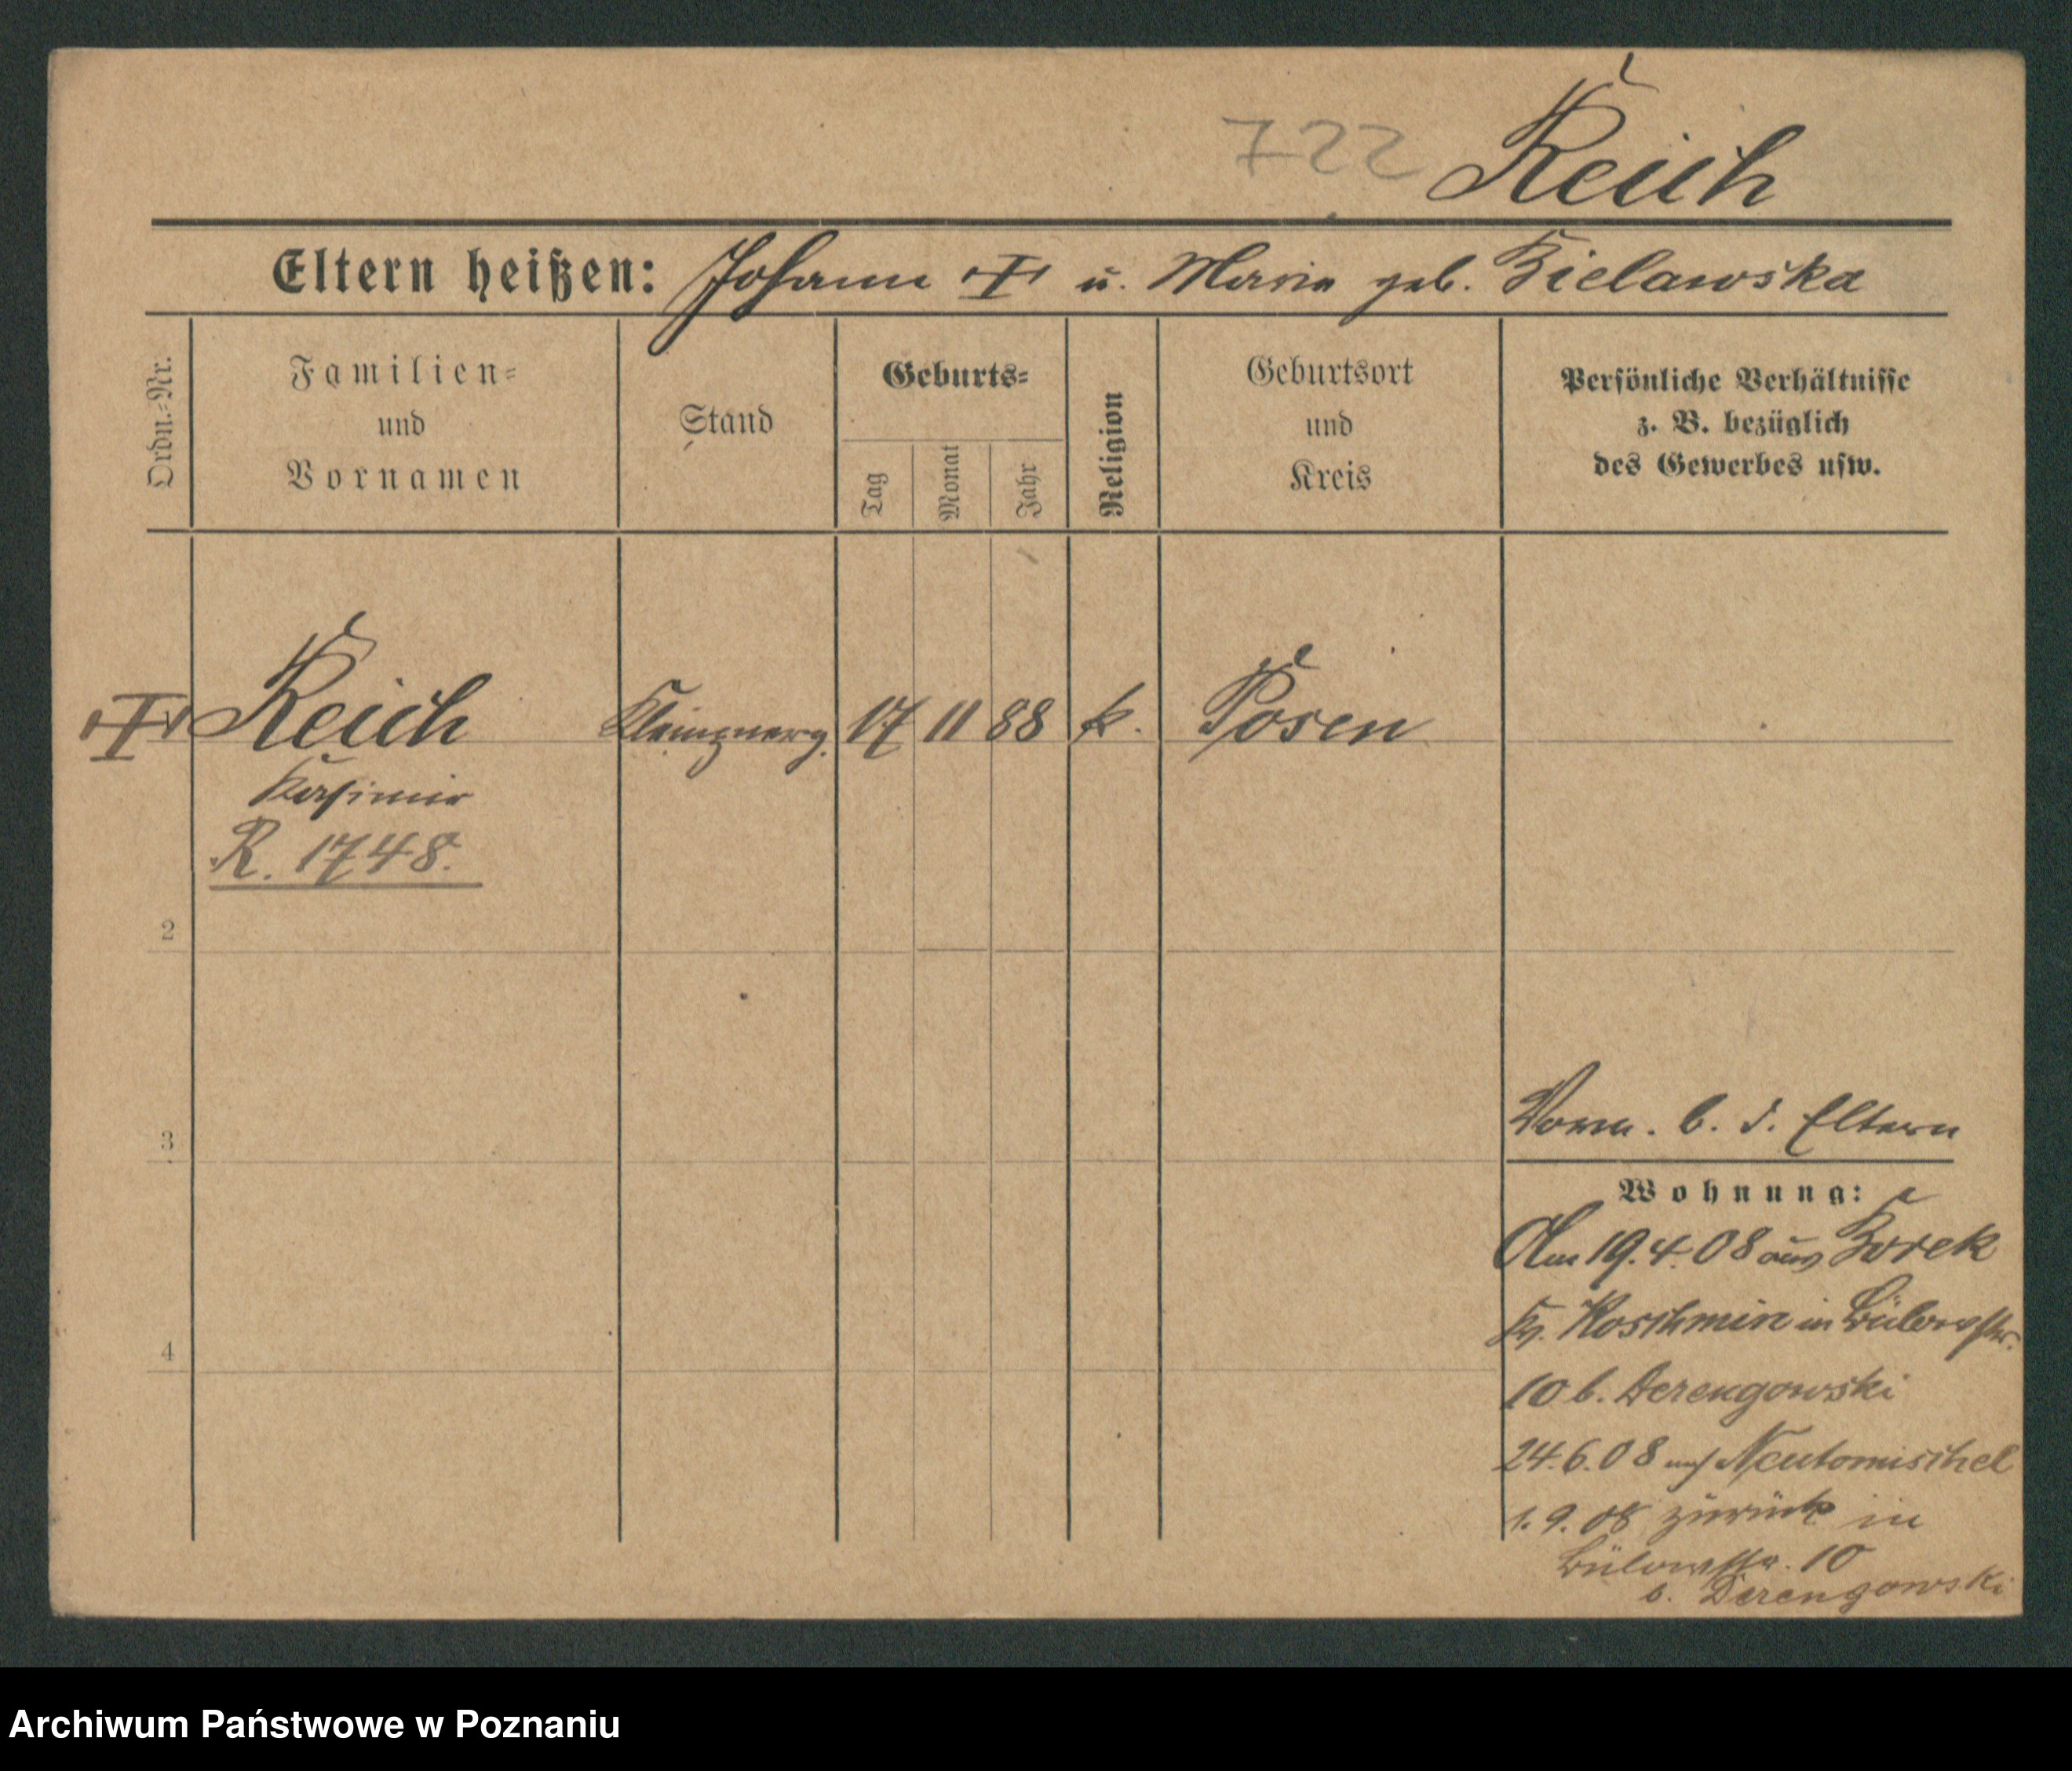 722 Reich
Eltern heißen: Johann † u. Maria geb. Bielawska
Ordn.-Nr.
Familien-
und
Vornamen
Stand
Geburts-
Tag
Monat
Jahr
Religion
Geburtsort
und
Kreis
Persönliche Verhältnisse
z. B. bezüglich
des Gewerbes usw.
† Reich Klempnerg. 17 11 88 k. Posen
Kasimir
R. 1748.
2
3
4
Vorm. b. d. Eltern
Wohnung:
Am 19.4.08 aus Borek
Kr. Koschmin in Bülowstr.
10 b. Derengowski
24.6.08 auf Neutomischel
1.9.08 zurück in
Bülowstr. 10
b. Derengowski
Archiwum Państwowe w Poznaniu